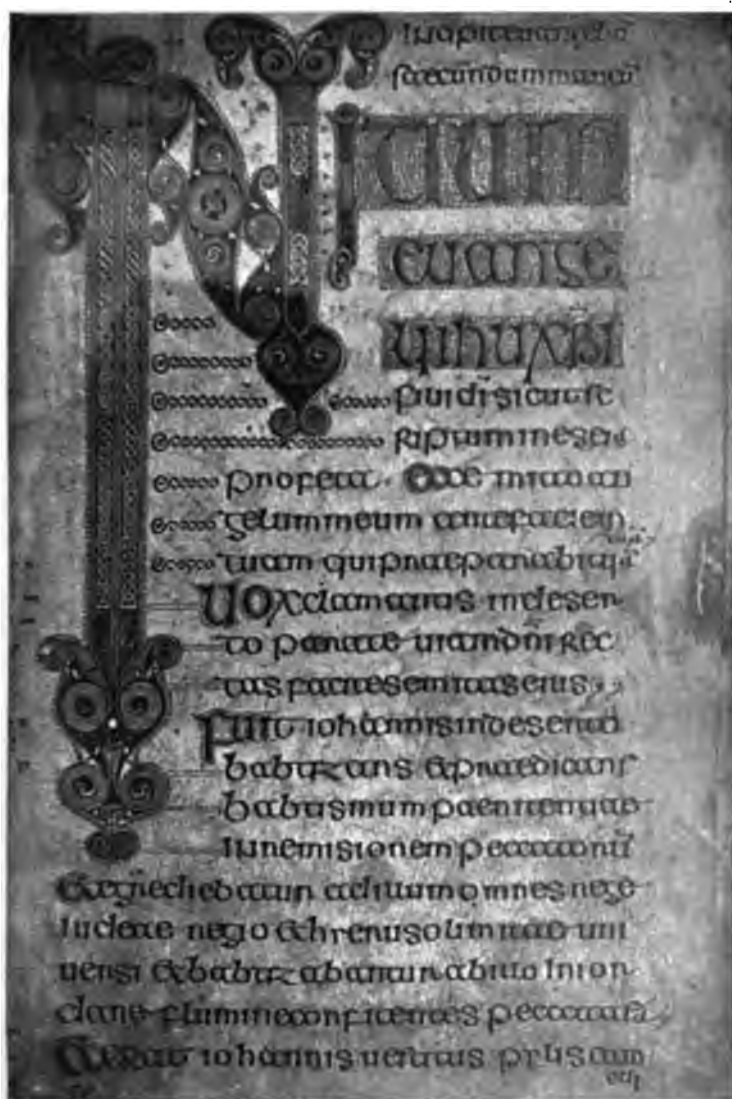 secundum marcū
INITIUM
euange
lii ihu xpi
fili di sicut sc
riptum in esei
profeta · Ecce mitto an
gelum meum ante faciem
tuam qui praeparabit
Uox clamantis in deser
to parate uiam dni rec
tas facite semitas eius
Fuit iohannis in deserto
babtizans et praedicans
babtismum paenitentiae
in remisionem peccatorū
ad illum omnes
iudeae regio et hierusolimitae uni
uersi et babtizabantur ab illo in ior
dane flumine confitentes peccata
et erat iohannis uestitus pylis cam